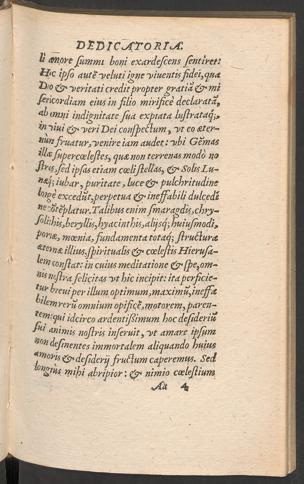 DEDICATORIA.
li amore summi boni exardescens sentiret:
Hic ipso autē veluti igne viuentis fidei, qua
Deo & veritati credit propter gratiā & mi
sericordiam eius in filio mirificè declaratā,
ab omni indignitate sua expiata lustrataq́;,
in viui & veri Dei conspectum, vt eo æter-
nùm fruatur, venire iam audet: vbi Gēmas
illæ supercœlestes, quæ non terrenas modò no
stras, sed ipsas etiam cœli stellas, & Solis Lu-
næq́; iubar, puritate, luce & pulchritudine
longè excedūt, perpetua & ineffabili dulcedi
ne cōtēplatur. Talibus enim smaragdis, chry-
solithis, beryllis, hyacinthis, alijsq́; huiusmodi,
portæ, mœnia, fundamenta totaq́; structura
æternæ illius, spiritualis & cœlestis Hierusa-
lem constat: in cuius meditatione & spe, om-
nis nostra felicitas vt hic incipit: ita perficie-
tur breui per illum optimum, maximū, ineffa
bilem rerū omnium opificē, motorem, paren-
tem: qui idcirco ardentissimum hoc desideriū
sui animis nostris inseruit, vt amare ipsum
non desinentes immortalem aliquando huius
amoris & desiderij fructum caperemus. Sed
longius mihi abripior: & nimio cœlestium
Aa 4